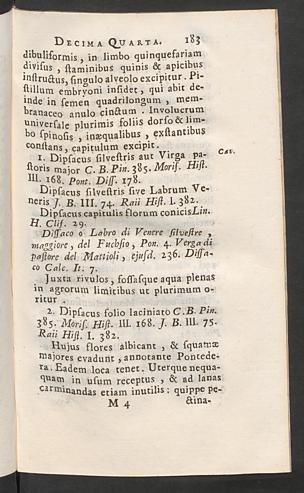 DECIMA QUARTA. 183
dibuliformis, in limbo quinquefariam
divisus, staminibus quinis & apicibus
instructus, singulo alveolo excipitur. Pi-
stillum embryoni insidet, qui abit de-
inde in semen quadrilongum, mem-
branaceo anulo cinctum. Involucrum
universale plurimis foliis dorso & lim-
bo spinosis, inæqualibus, exstantibus
constans, capitulum excipit.
1. Dipsacus silvestris aut Virga pa- Cav.
storis major C. B. Pin. 385. Moris. Hist.
III. 168. Pont. Diss. 178.
Dipsacus silvestris sive Labrum Ve-
neris J. B. III. 74. Raii Hist. I. 382.
Dipsacus capitulis florum conicis Lin.
H. Clif. 29.
Dissaco o Labro di Venere silvestre,
maggiore, del Fuchsio, Pon. 4. Verga di
pastore del Mattioli, ejusd. 236. Dissa-
co Calc. It. 7.
Juxta rivulos, fossasque aqua plenas
in agrorum limitibus ut plurimum o-
ritur.
2. Dipsacus folio laciniato C. B. Pin.
385. Moris. Hist. III. 168. J. B. III. 75.
Raii Hist. I. 382.
Hujus flores albicant, & squamæ
majores evadunt, annotante Pontede-
ra. Eadem loca tenet. Uterque nequa-
quam in usum receptus, & ad lanas
carminandas etiam inutilis: quippe pe-
M 4 ctina-